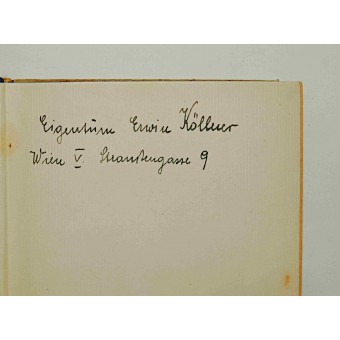 Eigentum Erwin Köllner
Wien V. Straußengasse 9